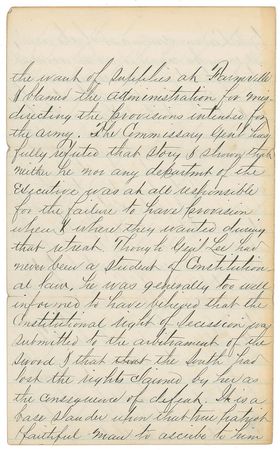 the want of supplies at Farmville
& blamed the administration for mis
directing the provisions intended for
the army. The Commissary Genl has
fully refuted that story & shown that
neither he nor any department of the
Executive was at all responsible
for the failure to have provision
when & where they wanted during
that retreat. Though Genl Lee had
never been a student of Constitution
al law, he was generally too well
informed to have believed that the
Constitutional right of Secession was
submitted to the arbitrament of the
sword & that the South had
lost the rights claimed by her as
the consequence of defeat. It is a
base slander upon that true patriot
& faithful man to ascribe to him